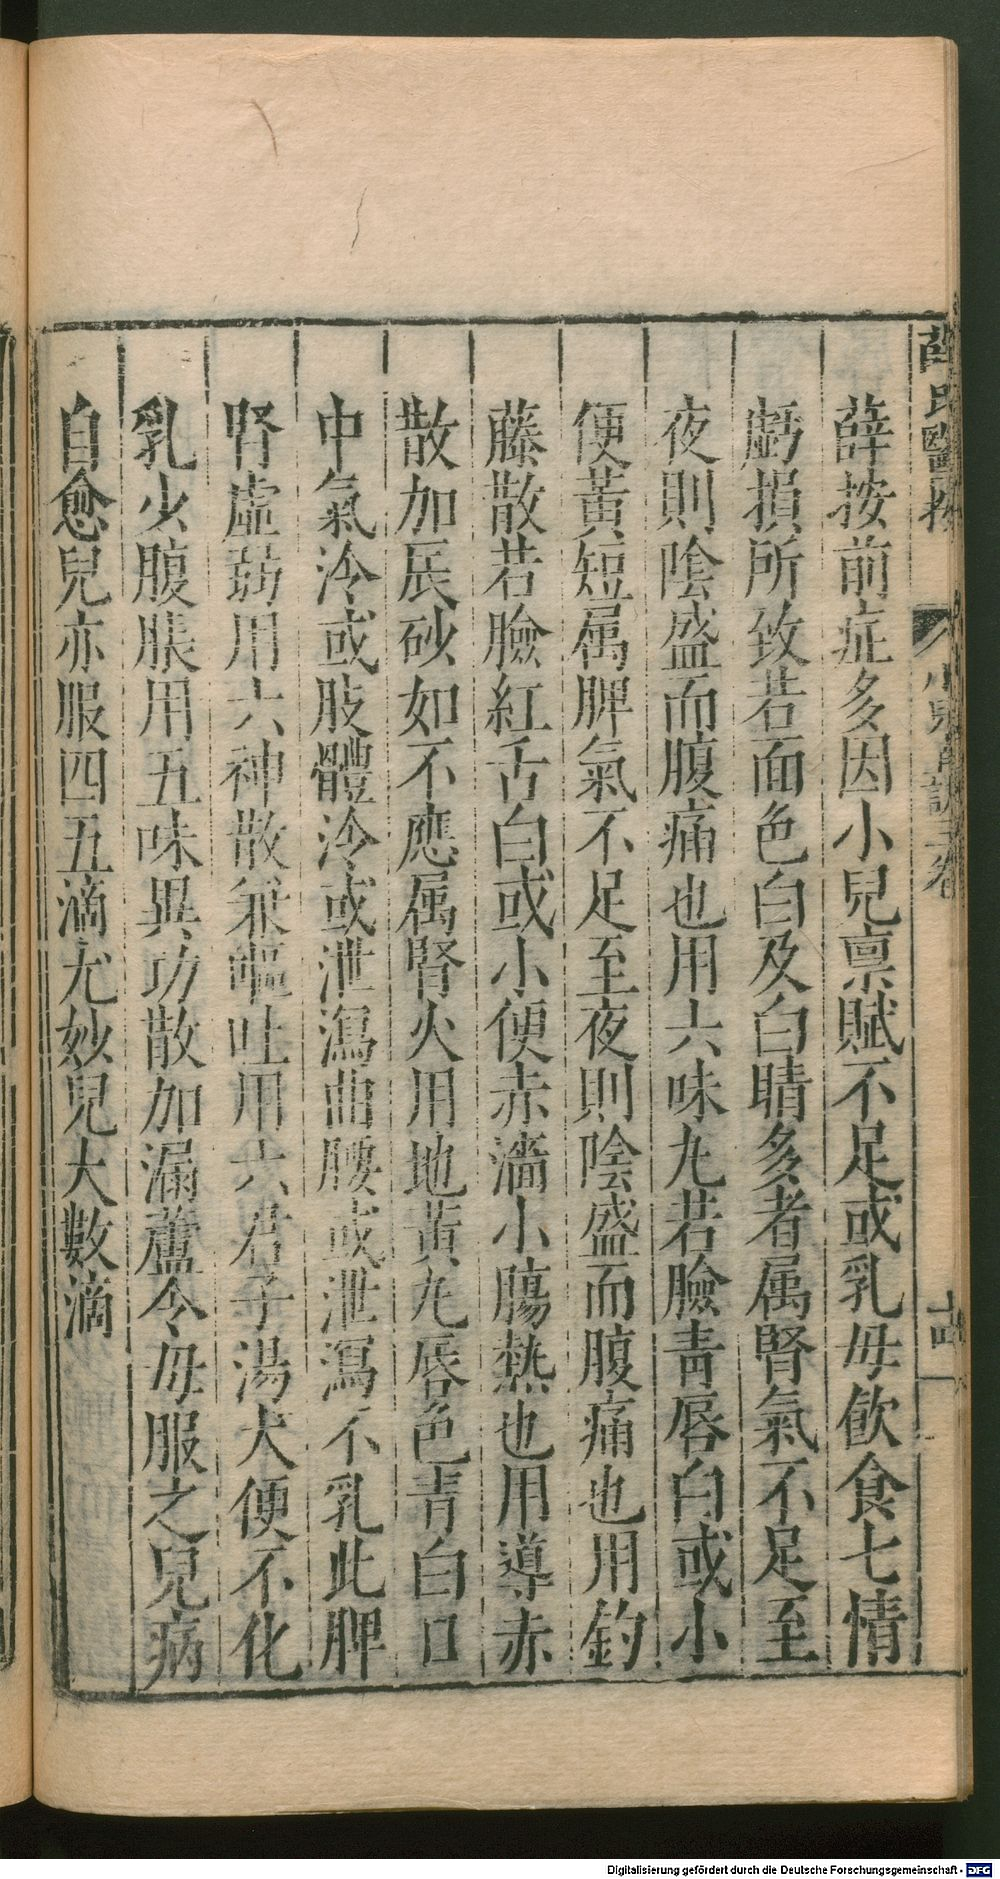 薛按前症多因小兒禀賦不足或乳母飲食七情
虧損所致若面色白及白睛多者属腎氣不足至
夜則陰盛而腹痛也用六味丸若臉青唇白或小
便黃短属脾氣不足至夜則陰盛而腹痛也用釣
藤散若臉紅舌白或小便赤濇小腸熱也用導赤
散加辰砂如不應属腎火用地黃丸唇色青白口
中氣冷或肢體冷或泄瀉曲腰或泄瀉不乳此脾
腎虛弱用六神散兼嘔吐用六君子湯大便不化
乳少腹脹用五味異功散加漏蘆令母服之兒病
自愈兒亦服四五滴尤妙兒大數滴
Digitalisierung gefördert durch die Deutsche Forschungsgemeinschaft - DFG